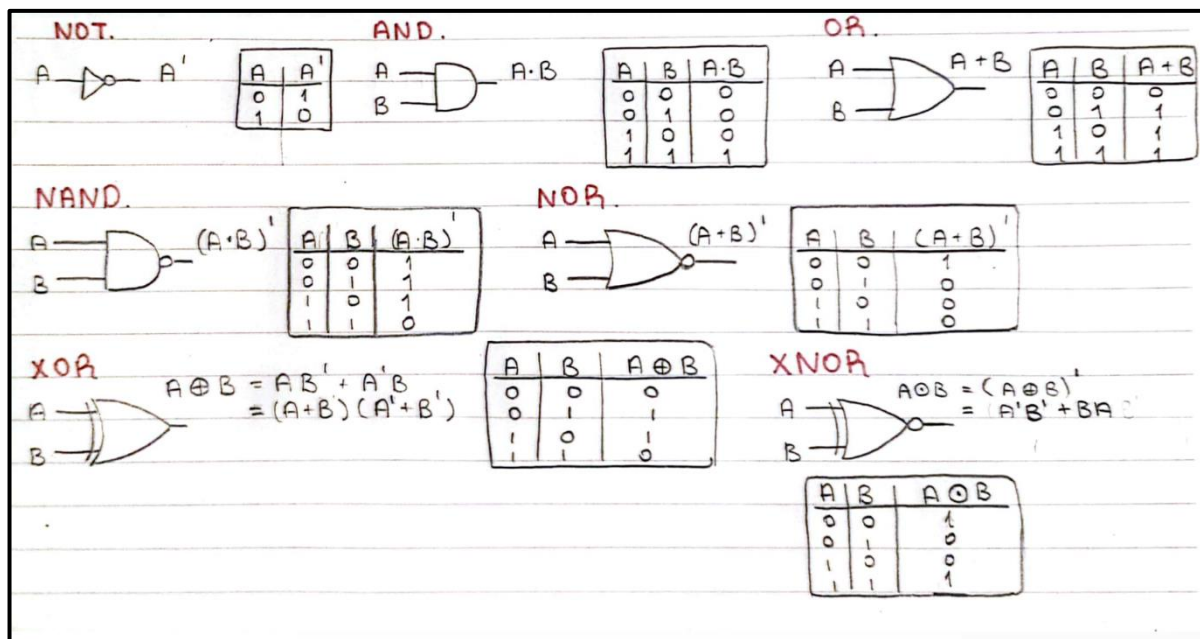 NOT.
A A'
A A'
0 1
1 0
AND.
A A·B
B
A B A·B
0 0 0
0 1 0
1 0 0
1 1 1
OR.
A A+B
B
A B A+B
0 0 0
0 1 1
1 0 1
1 1 1
NAND.
A (A·B)'
B
A B (A·B)'
0 0 1
0 1 1
1 0 1
1 1 0
NOR.
A (A+B)'
B
A B (A+B)'
0 0 1
0 1 0
1 0 0
1 1 0
XOR
A⊕B = AB' + A'B
= (A+B)(A'+B')
A
B
A B A⊕B
0 0 0
0 1 1
1 0 1
1 1 0
XNOR
A⊙B = (A⊕B)'
= (A'B' + BA
A
B
A B A⊙B
0 0 1
0 1 0
1 0 0
1 1 1